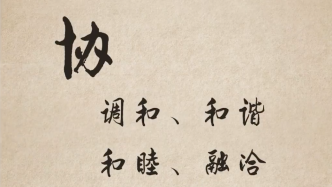 协
调和、和谐
和睦、融洽